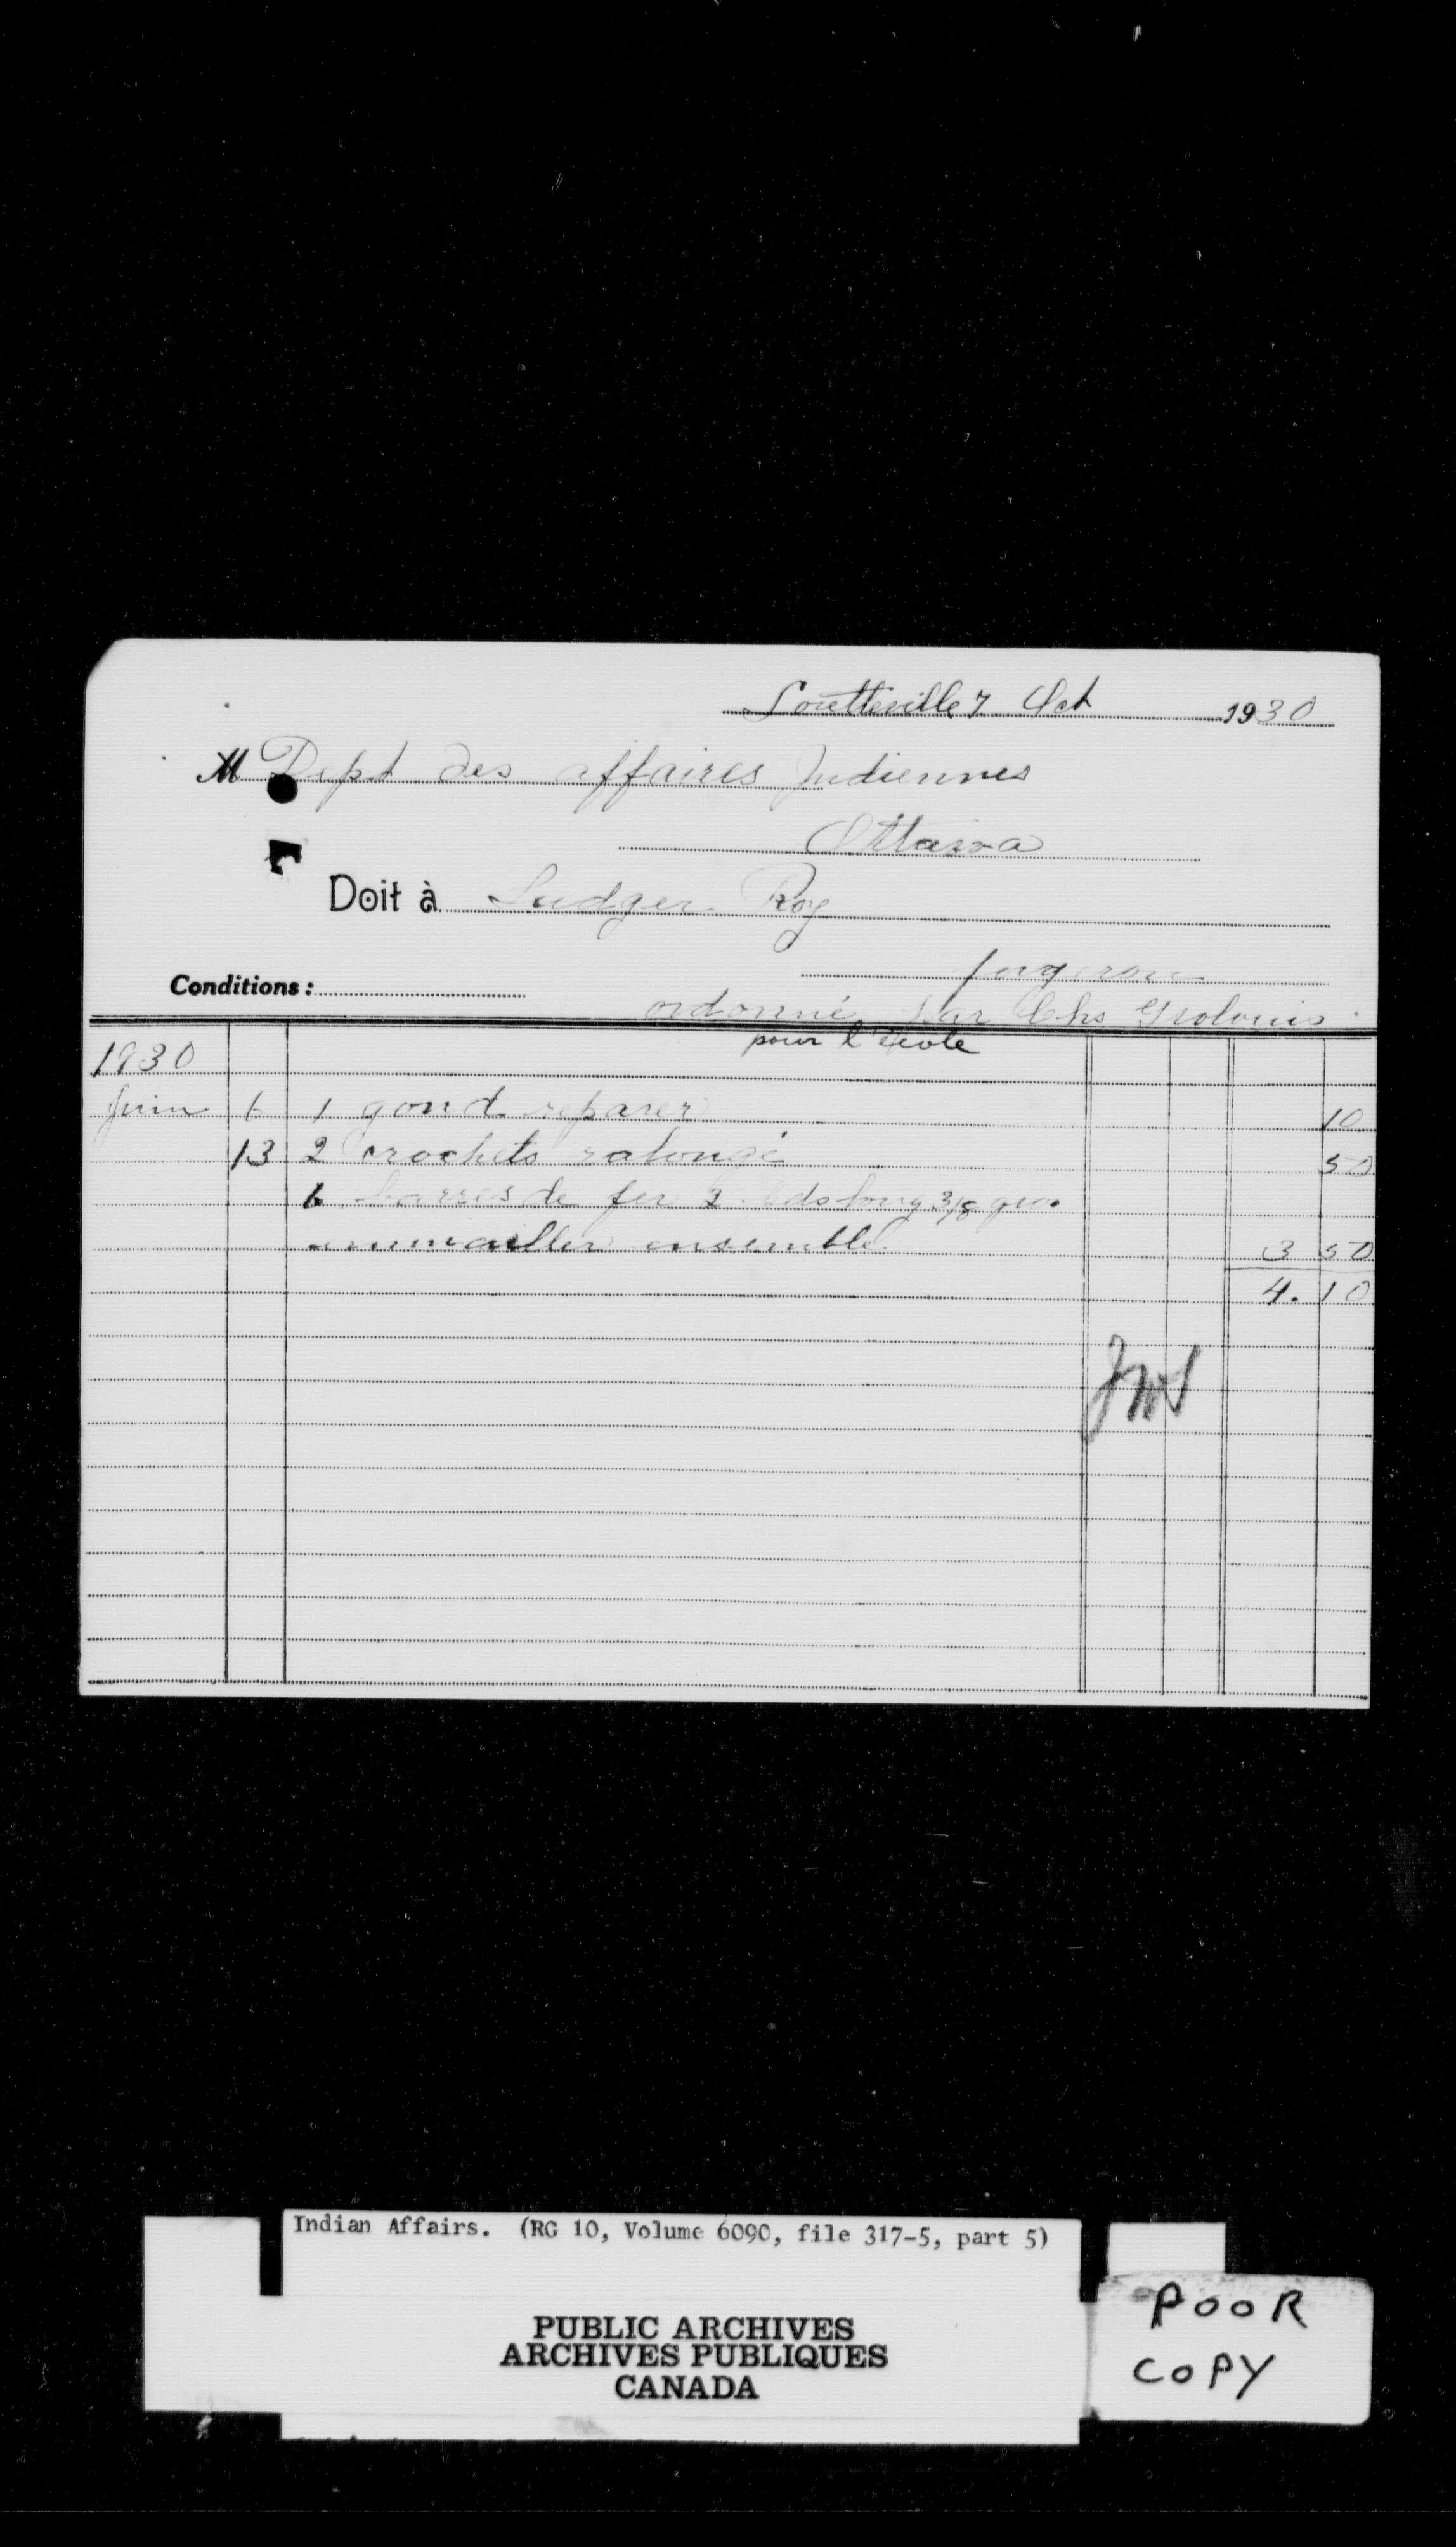 Loretteville 7 Oct 1930
M Dept des affaires Indiennes
Ottawa
Doit à Ludger Roy
forgeron
Conditions :
ordonné par Chs Groslouis
pour l'école
1930
Juin 6 1 gond reparer 10
13 2 crochets ralongé 50
6 barres de fer 2 pds long 3/8 gros
ensemble 3 50
4.10
Indian Affairs. (RG 10, Volume 6090, file 317-5, part 5)
PUBLIC ARCHIVES
ARCHIVES PUBLIQUES
CANADA
POOR
COPY